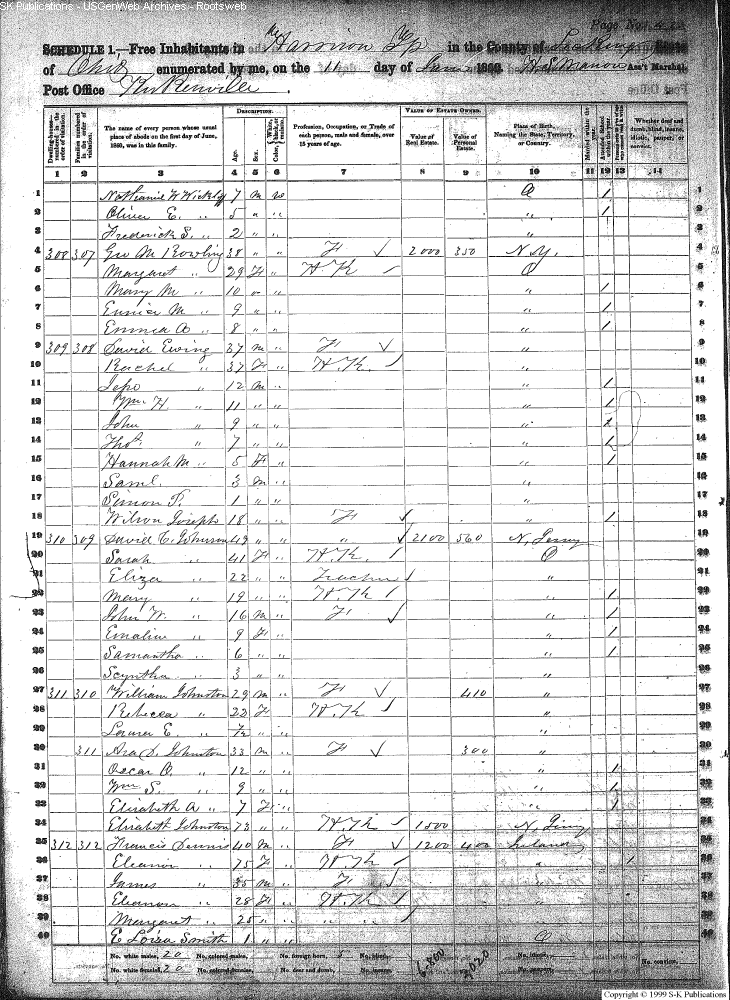 SK Publications - USGenWeb Archives - Rootsweb
Page No.
SCHEDULE 1.—Free Inhabitants in Harrison Tp in the County of Licking State
of Ohio enumerated by me, on the 11 day of June 1860. Ass't Marshal.
Post Office
DESCRIPTION. VALUE OF ESTATE OWNED.
Dwelling-houses—numbered in the order of visitation.
Families numbered in the order of visitation.
The name of every person whose usual place of abode on the first day of June, 1860, was in this family.
Age.
Sex.
Color, White, black, or mulatto.
Profession, Occupation, or Trade of each person, male and female, over 15 years of age.
Value of Real Estate.
Value of Personal Estate.
Place of Birth, Naming the State, Territory, or Country.
Married within the year.
Attended School within the year.
Whether deaf and dumb, blind, insane, idiotic, pauper, or convict.
1 2 3 4 5 6 7 8 9 10 11 12 13 14
1 Nathaniel W 7 m w O / 1
2 Oliver E. " 5 " " " / 2
3 Frederick S. " 2 " " " 3
4 308 307 Geo M Rowling 38 " " F 2000 350 N.Y. 4
5 Margaret " 29 F " H.K. O 5
6 Mary M " 10 " " " / 6
7 Eunice M " 9 " " " / 7
8 Emma A " 8 " " " / 8
9 309 308 David Ewing 37 m " F " 9
10 Rachel " 37 F " H.K. " 10
11 " 12 m " " / 11
12 Wm H " 11 " " " / 12
13 John " 9 " " " / 13
14 Thos. " 7 " " " / 14
15 Hannah M " 5 F " " / 15
16 Saml. " 3 m " " 16
17 Simon P. " 1 " " " 17
18 Wilson Joseph 18 " " F " / 18
19 310 309 David C. Johnson 49 " " " 2100 560 N. Jersey 19
20 Sarah " 41 F " H.K. O 20
21 Eliza " 22 " " Teacher " 21
22 Mary " 19 " " H.K. " / 22
23 John W. " 16 m " F " / 23
24 Emaline " 9 F " " / 24
25 Samantha " 6 " " " / 25
26 Scyntha " 3 " " " 26
27 311 310 William Johnston 29 m " F 410 " 27
28 Rebecca " 22 F " H.K. " 28
29 Laura E " " " " 29
30 311 Asa D. Johnston 33 m " F 300 " 30
31 Oscar O. " 12 " " " / 31
32 Wm S. " 9 " " " / 32
33 Elizabeth A " 7 F " " / 33
34 Elizabeth Johnston 73 " " H.K. 1500 N. Jersey 34
35 312 312 Francis Dennis 40 m " F 1200 400 Ireland 35
36 Eleanor " 75 F " H.K. " / 36
37 James " 35 m " F " 37
38 Eleanor " 28 F " H.K. " 38
39 Margaret " 25 " " " " " 39
40 E Loiza Smith 1 " " O 40
No. white males, 20 No. colored males, No. foreign born, 5 No. blind, 6.800 2020 No. idiotic,
No. white females, 20 No. colored females, No. deaf and dumb, No. insane, No. paupers, No. convicts,
Copyright © 1999 S-K Publications